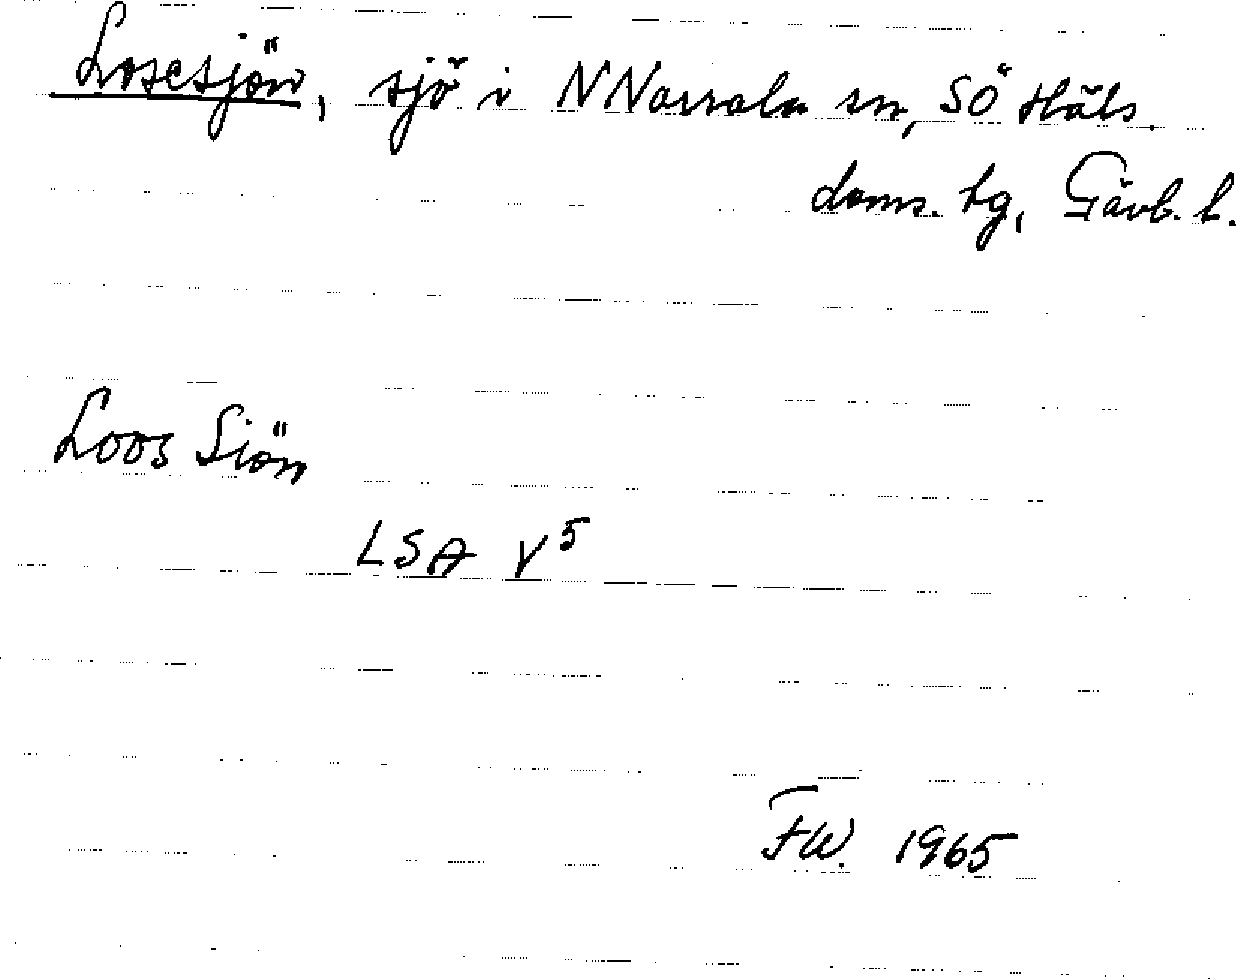 Losesjön, sjö i N Norrala sn, SÖ Häls.
doms. tg, Gävb. l.
Loos Siön
LSA V5
FW. 1965